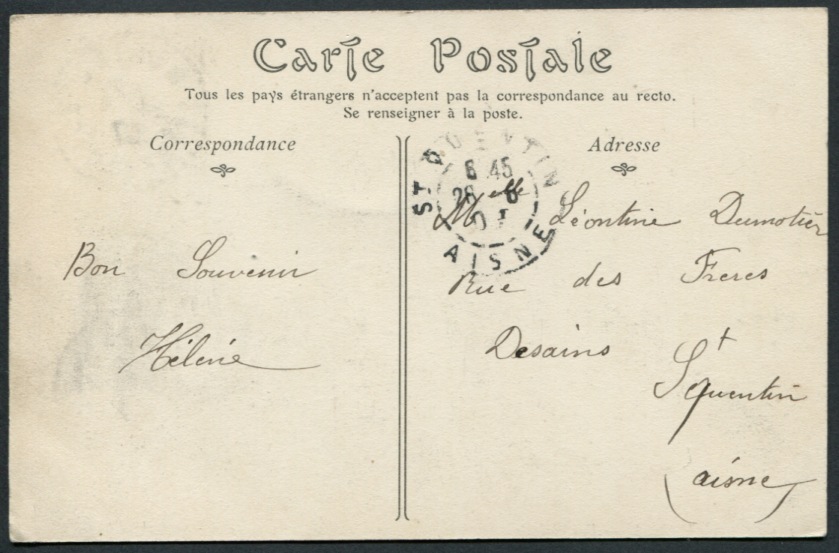 Carte Postale
Tous les pays étrangers n'acceptent pas la correspondance au recto.
Se renseigner à la poste.
Correspondance
Bon Souvenir
Hélène
Adresse
ST QUENTIN
8 45
AISNE
Melle Léontine Dumotier
Rue des Freres
Desains
St
Quentin
(aisne)